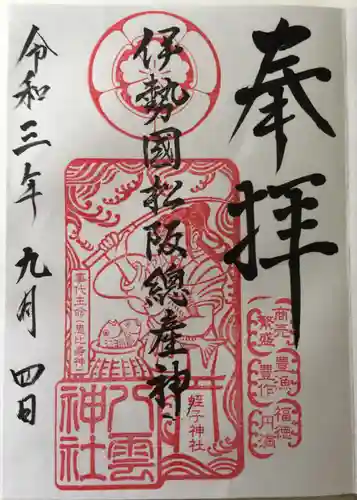 奉拝
伊勢國松阪總産神
令和三年九月四日
事代主命(恵比壽神)
蛭子神社
八雲神社
商売繁盛
豊漁豊作
福徳円満